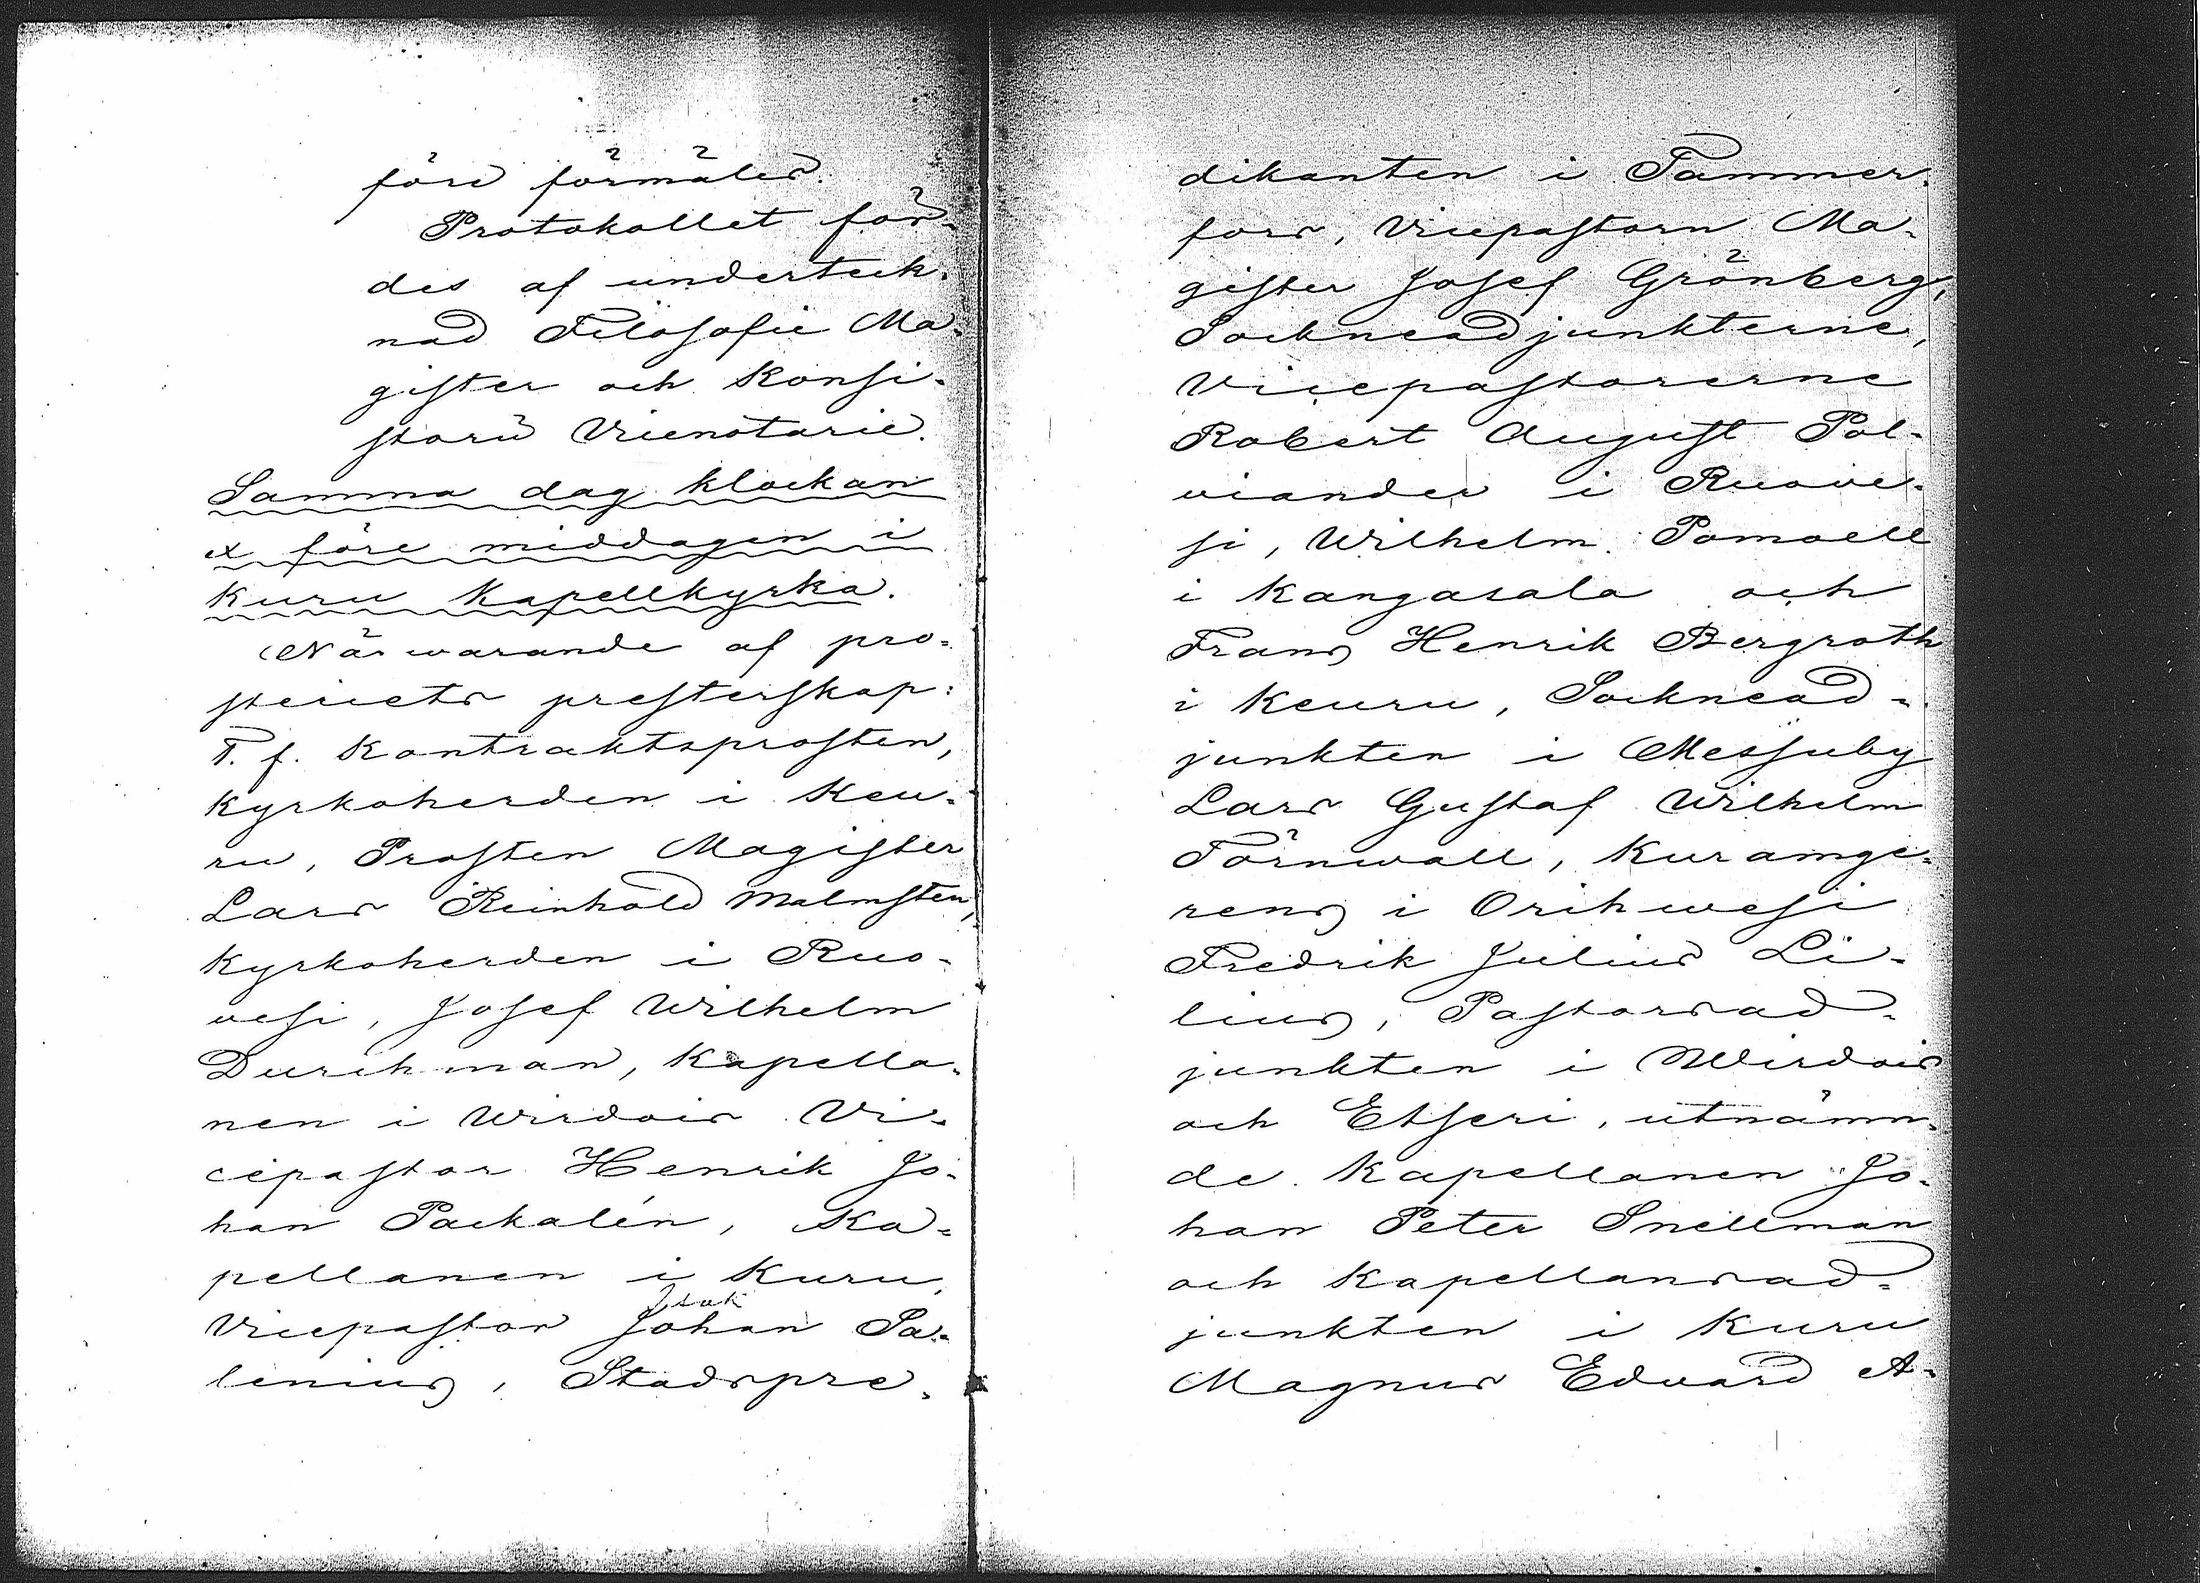 före förmäles.
Protokollet för-
des af underteck-
nad Filosofie Ma-
gister och Konsi-
storii Vicenotarie.
Samma dag klockan
ex före middagen i
Kuru Kapellkyrka.
Närwarande af pro-
steriets presterskap:
T. f. Kontraktsprosten,
Kyrkoherden i Keu-
ru, Prosten Magister
Lars Reinhold Malmsten,
Kyrkoherden i Ruo-
vesi, Josef Wilhelm
Durchman, Kapella-
nen i Wirdois Vi-
cepastor Henrik Jo-
han Packalén, Ka-
pellanen i Kuru,
Isak
Vicepastor Johan Sa-
lenius, Stadspre-
dikanten i Tammer-
fors, Vicepastorn Ma-
gister Josef Grönberg,
Sockneadjunkterne,
Vicepastorerne
Robert August Pol-
viander i Ruowe-
si, Wilhelm Pomoell
i Kangasala och
Frans Henrik Bergroth
i Keuru, Socknead-
junkten i Messuby
Lars Gustaf Wilhelm
Törnwall, Kuramge-
rens i Orihwesi
Fredrik Julius Li-
lius, Pastorsad-
junkten i Wirdois
och Etseri, utnämn-
de Kapellanen Jo-
han Peter Snellman
och Kapellansad-
junkten i Kuru
Magnus Edvard A-